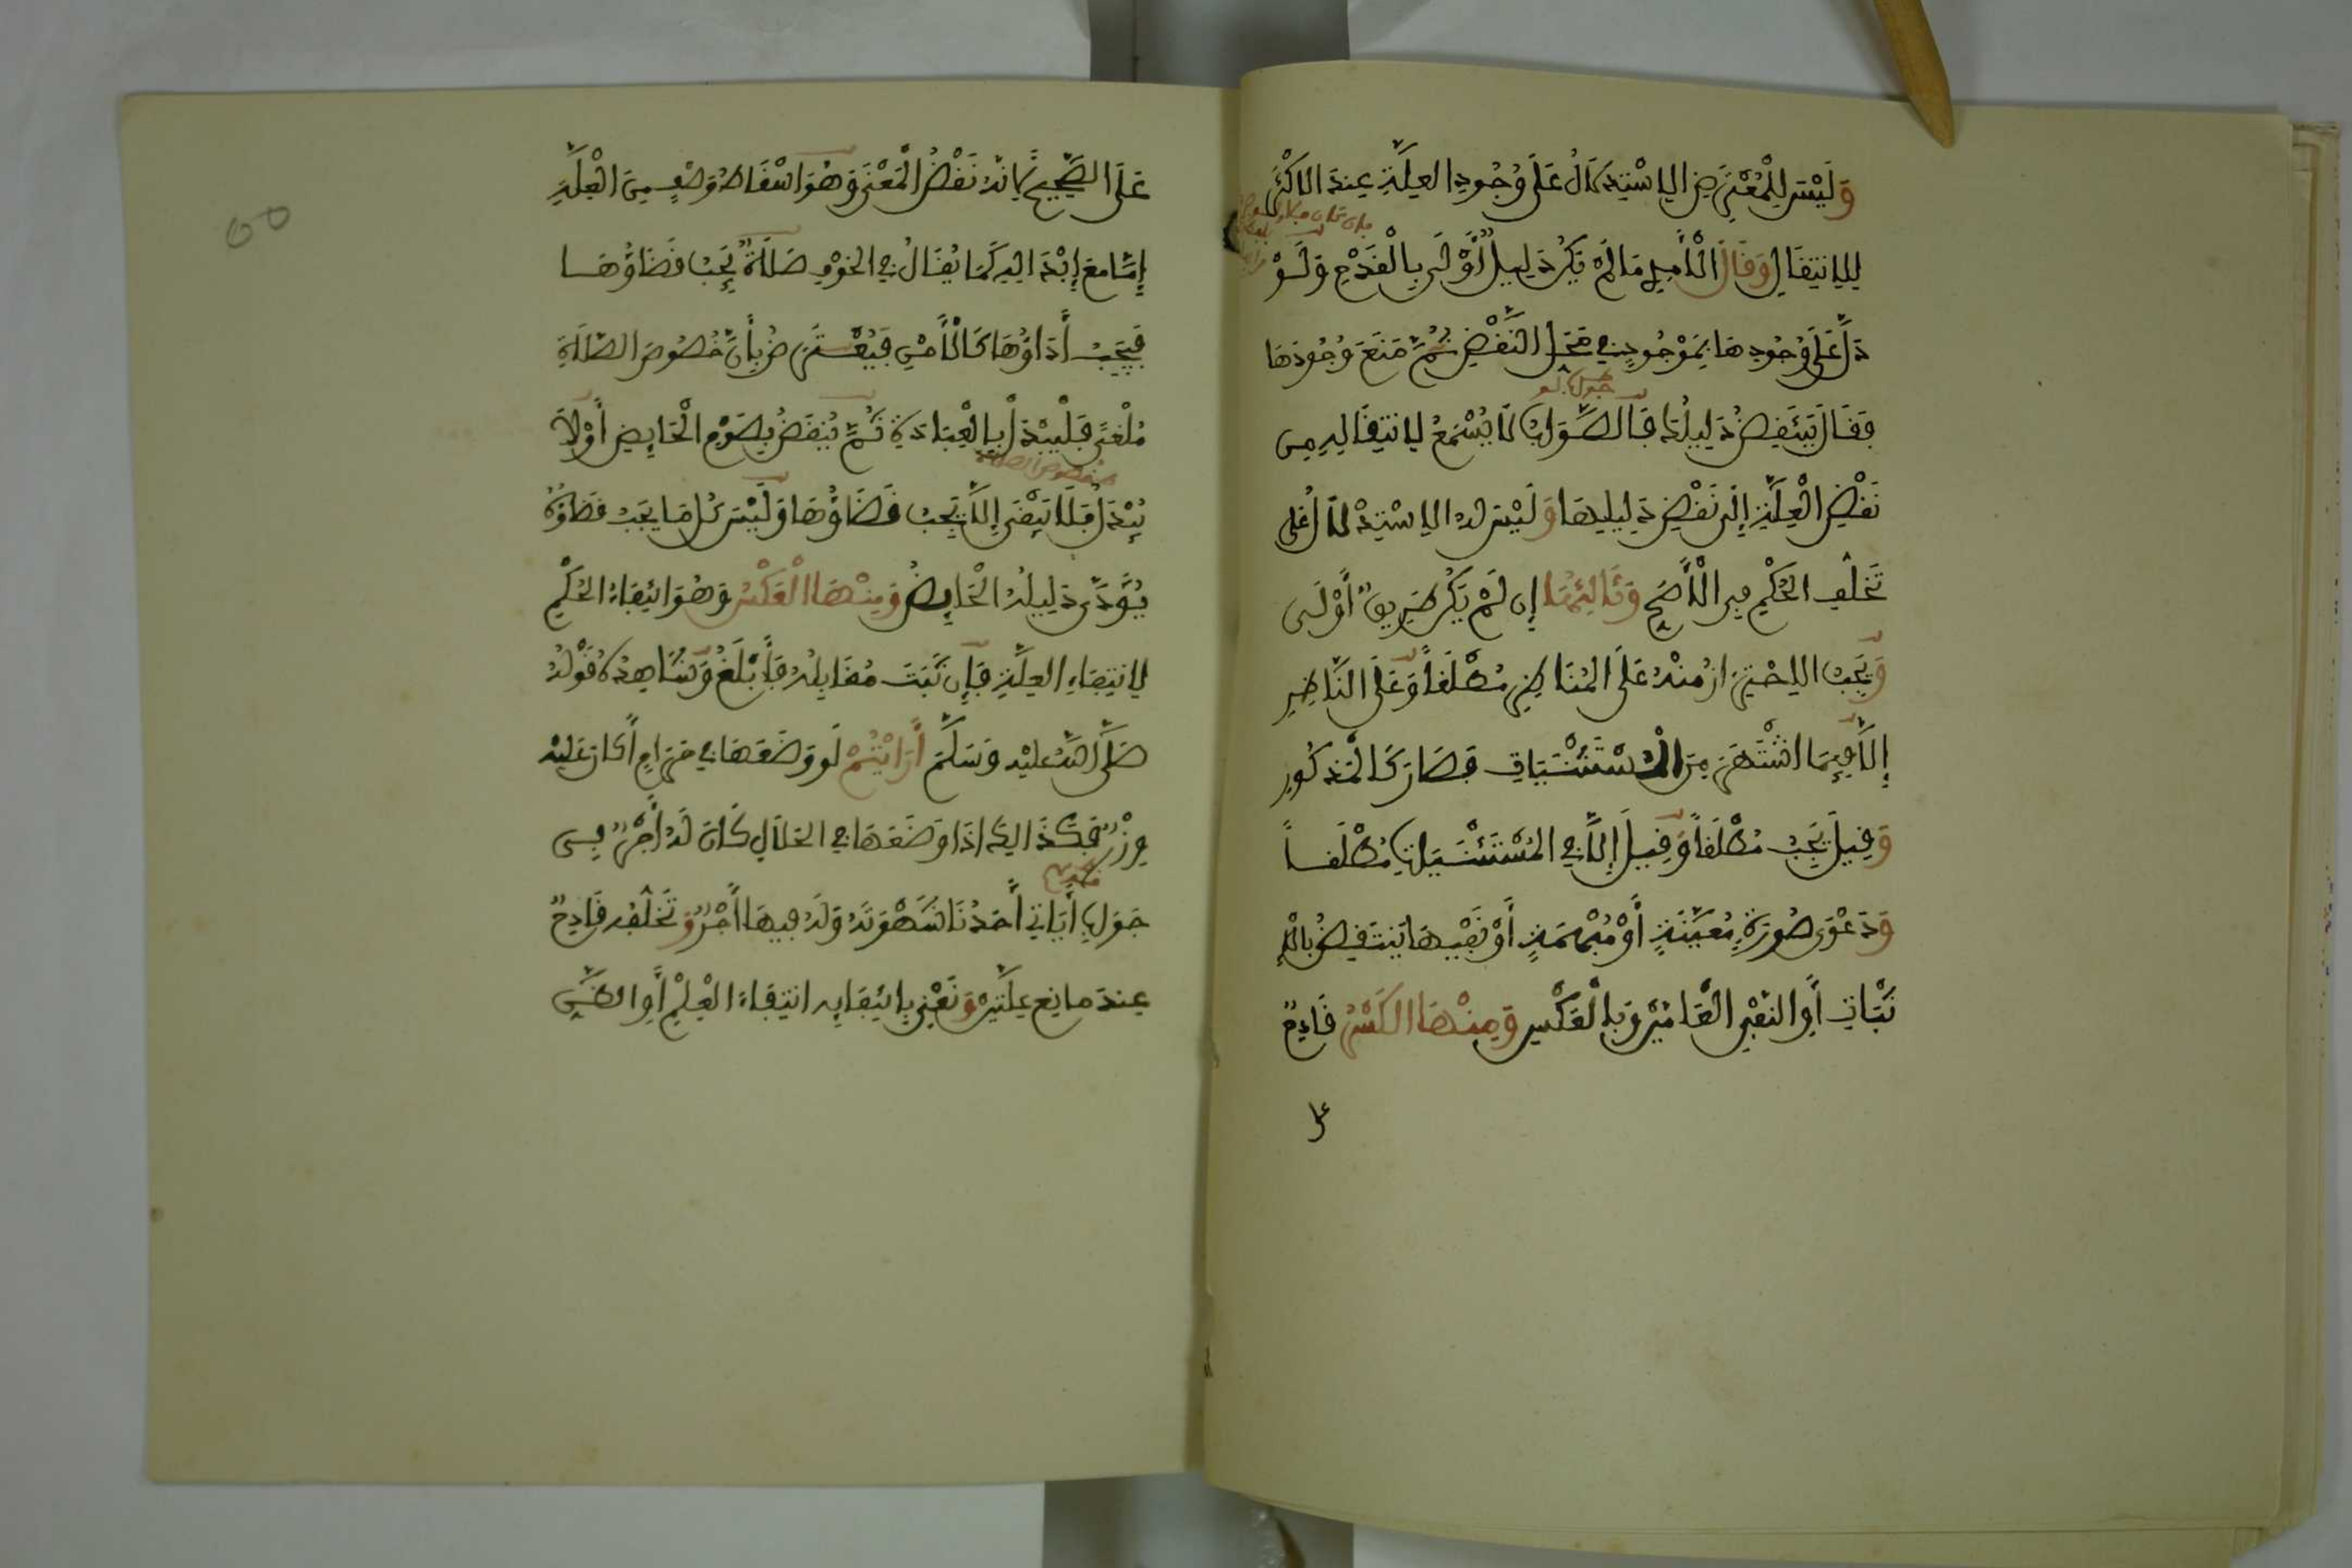 وَلَيْسَ لِلْمُعْتَرِضِ الِاسْتِدْلَالُ عَلَى وُجُودِ العِلَّةِ عِندَ الاكْثَرِ
لِلِانتِقَالِ وَقَالَ الْأَمِدِي مَا لَمْ يَكُن دَلِيلٌ أَوْلَى بِالْقَدْحِ وَلَوْ
دَلَّ عَلَى وُجُودِهَا بِمَوْجُودٍ فِي مَحَلِّ النَّقْضِ ثُمَّ مَنَعَ وُجُودَهَا
فَقَالَ يَنتَقِضُ دَلِيلُكَ فَالصَّوَابُ لَا يُسْمَعُ لِانتِقَالِهِ مِن
نَقْضِ الْعِلَّةِ إِلَى نَقْضِ دَلِيلِهَا وَلَيْسَ لَهُ الِاسْتِدْلَالُ عَلَى
تَخَلُّفِ الحُكْمِ فِي الْأَصَحِّ وَثَالِثُهَا إِن لَمْ يَكُن طَرِيقٌ أَوْلَى
وَيَجِبُ الِاحْتِرَازُ مِنْهُ عَلَى المُنَاظِرِ مُطْلَقاً وَعَلَى النَّاظِرِ
إِلَّا فِيمَا اشْتَهَرَ مِنَ الْمُسْتَثْنَيَاتِ فَصَارَ كَالْمَذكُورِ
وَقِيلَ يَجِبُ مُطْلَقاً وَقِيلَ إِلَّا فِي المُسْتَثْنَيَاتِ مُطْلَقاً
وَدَعْوَى صُورَةٍ مُعَيَّنَةٍ أَوْ مُبْهَمَةٍ أَوْ نَفْيِهَا يَنتَقِضُ بِالْإِ
ثْبَاتِ أَوِ النَّفْيِ الْعَامَّيْنِ وَبِالْعَكْسِ وَمِنْهَا الكَسْرُ قَادِحٌ
عَلَى
عَلَى الصَّحِيحِ لِأَنَّهُ نَقْضُ الْمَعْنَى وَهُوَ اسْقَاطُ وَصْفٍ مِنَ الْعِلَّةِ
إِمَّا مَعَ إِبْدَالِهِ كَمَا يُقَالُ فِي الخَوْفِ صَلَاةٌ يَجِبُ قَضَاؤُهَا
فَيَجِبُ أَدَاؤُهَا كَالْأَمْنِ فَيُعْتَرَضُ بِأَنَّ خُصُوصَ الصَّلَاةِ
مُلْغًى فَلْيُبْدَلْ بِالْعِبَادَةِ ثُمَّ يُنقَضُ بِصَوْمِ الْحَائِضِ أَوْ لَا
خصوص الصلاة
يُبْدَلُ فَلَا يَبْقَى إِلَّا يَجِبُ قَضَاؤُهَا وَلَيْسَ كُلُّ مَا يَجِبُ قَضَاؤُهُ
يُؤَدَّى دَلِيلُهُ الْحَائِضُ وَمِنْهَا الْعَكْسُ وَهُوَ انتِفَاءُ الحُكْمِ
لِانتِفَاءِ العِلَّةِ فَإِن ثَبَتَ مُقَابِلُهُ فَأَبْلَغُ وَشَاهِدُهُ قَوْلُهُ
صَلَّى اللَّهُ عَلَيْهِ وَسَلَّمَ أَرَايْتُمْ لَو وَضَعَهَا فِي حَرَامٍ أَكَانَ عَلَيْهِ
وِزْرٌ فَكَذَالِكَ اذَا وَضَعَهَا فِي الحَلَالِ كَانَ لَهُ أَجْرٌ فِي
جَوَابِ أَيَاتِي أَحَدُنَا شَهْوَتَهُ وَلَهُ فِيهَا أَجْرٌ وَتَخَلُّفُهُ قَادِحٌ
عِندَ مَانِعِ عِلَّتَيْنِ وَنَعْنِي بِانتِفَائِهِ انتِفَاءَ الْعِلْمِ أَوِ الظَّنِّ